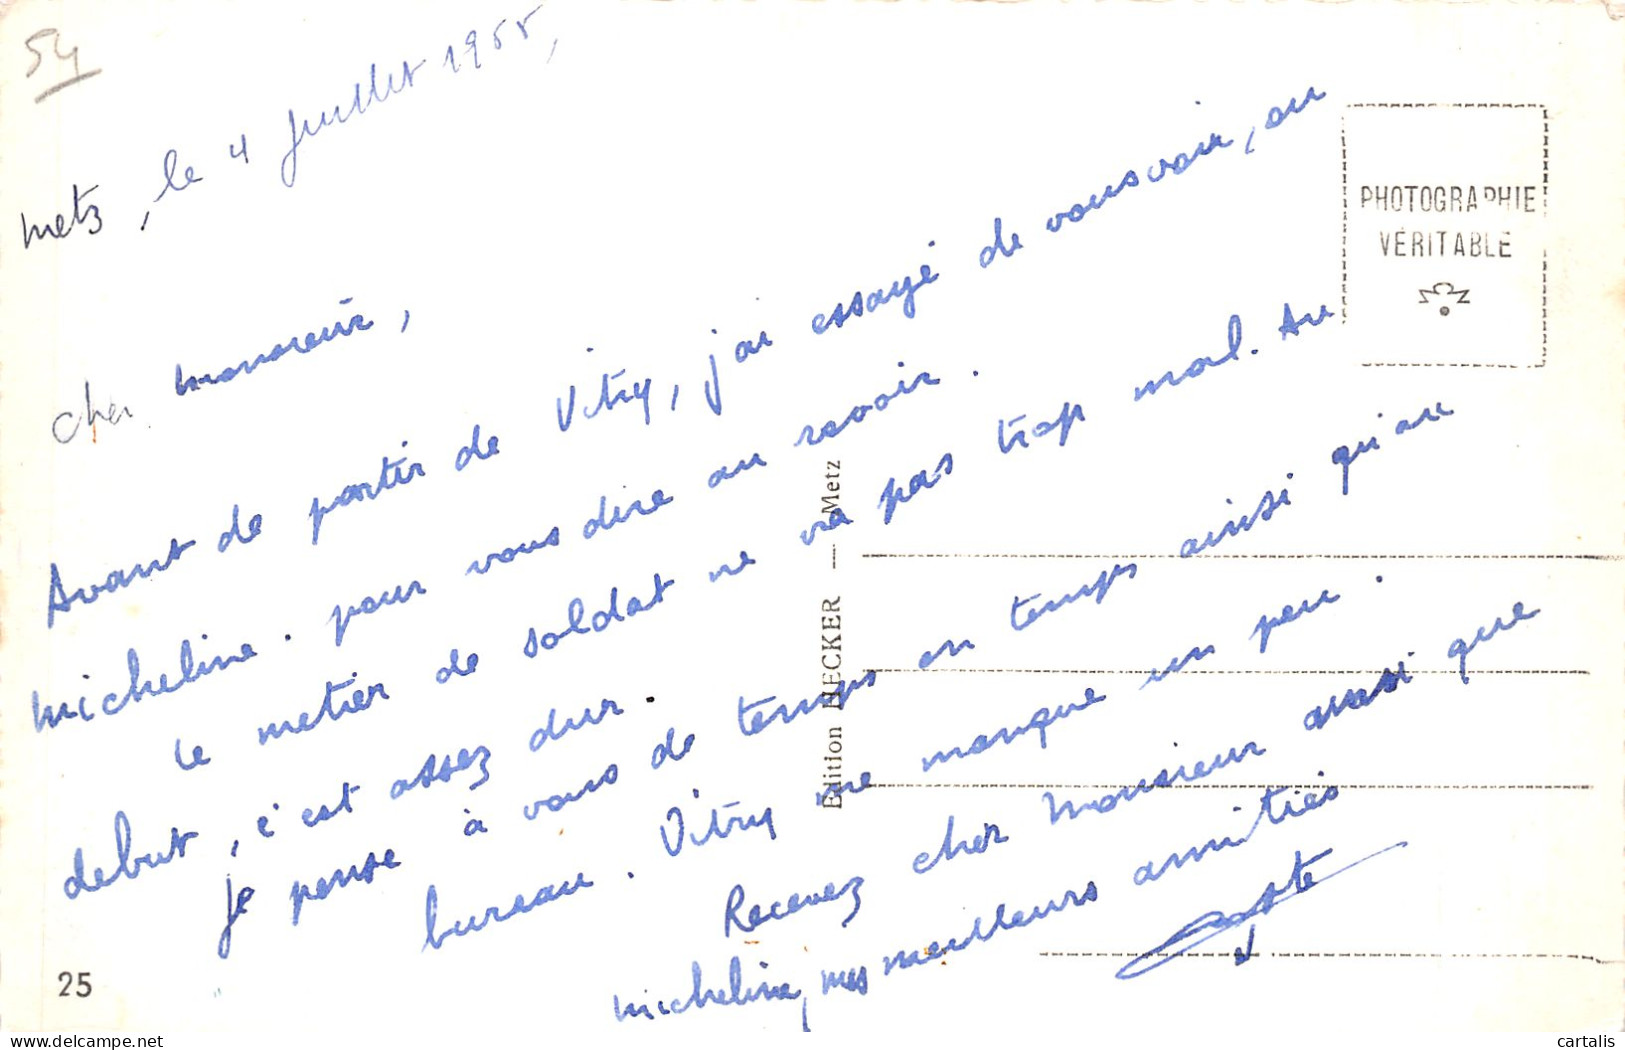 54
Metz, le 4 Juillet 1955,
cher monsieur,
Avant de partir de Vitry, j'ai essayé de vous voir, ou
micheline. pour vous dire au revoir.
Le metier de soldat ne va pas trop mal. Au
debut, c'est assez dur.
Je pense à vous de temps en temps ainsi qu'au
bureau. Vitry me manque un peu.
Recevez cher Monsieur ainsi que
micheline, mes meilleurs amitiés
PHOTOGRAPHIE
VÉRITABLE
Edition HECKER — Metz
25
cartalis